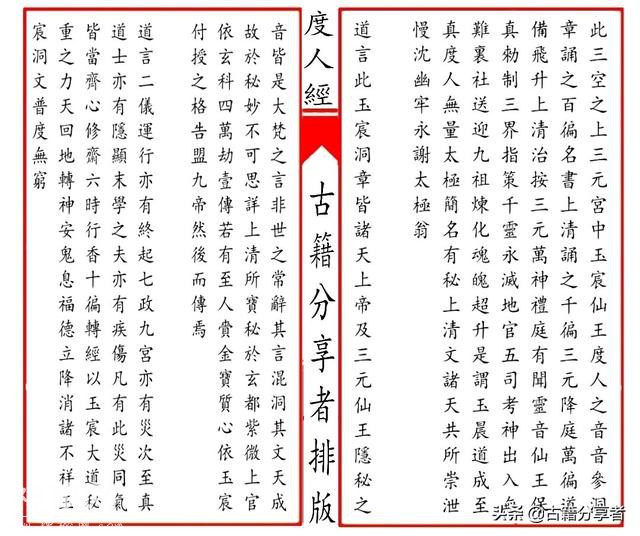 此三空之上三元宮中玉宸仙王度人之音音參洞
章誦之百徧名書上清誦之千徧三元降庭萬徧道
備飛升上清治按三元萬神禮庭有聞靈音仙王保
真勑制三界指策千靈永滅地官五司考神出入無
難裏社送迎九祖煉化魂魄超升是謂玉晨道成至
真度人無量太極簡名有秘上清文諸天共所崇泄
慢沈幽牢永謝太極翁
道言此玉宸洞章皆諸天上帝及三元仙王隱秘之
度人經
古籍分享者排版
音皆是大梵之言非世之常辭其言混洞其文天成
故於秘妙不可思詳上清所寶秘於玄都紫微上官
依玄科四萬劫壹傳若有至人賫金寶質心依玉宸
付授之格告盟九帝然後而傳焉
道言二儀運行亦有終起七政九宮亦有災次至真
道士亦有隱顯末學之夫亦有疾傷凡有此災同氣
皆當齊心修齋六時行香十徧轉經以玉宸大道秘
重之力天回地轉神安鬼息福德立降消諸不祥玉
宸洞文普度無窮
头条 @古籍分享者